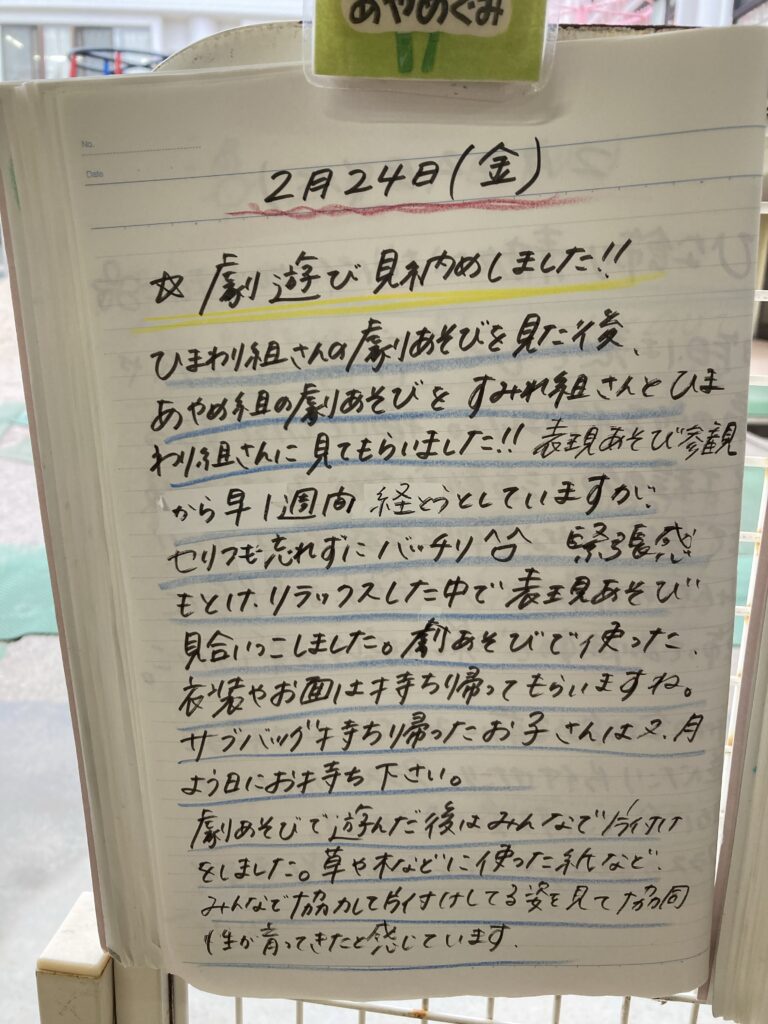 あやめぐみ
No.
Date
2月24日(金)
☆ 劇遊び見納めしました!!
ひまわり組さんの劇あそびを見た後、
あやめ組の劇あそびを すみれ組さんとひま
わり組さんに見てもらいました!! 表現あそび参観
から早1週間 経とうとしていますが、
セリフも忘れずにバッチリ^o^ 緊張感
もとけ、リラックスした中で表現あそび
見合いっこしました。劇あそびで使った、
衣装やお面は持ち帰ってもらいますね。
サブバッグ持ち帰ったお子さんは又、月
よう日にお持ち下さい。
劇あそびで遊んだ後はみんなで片付け
をしました。草や木などに使った紙など、
みんなで協力して片付けしてる姿を見て協同
性が育ってきたと感じています。